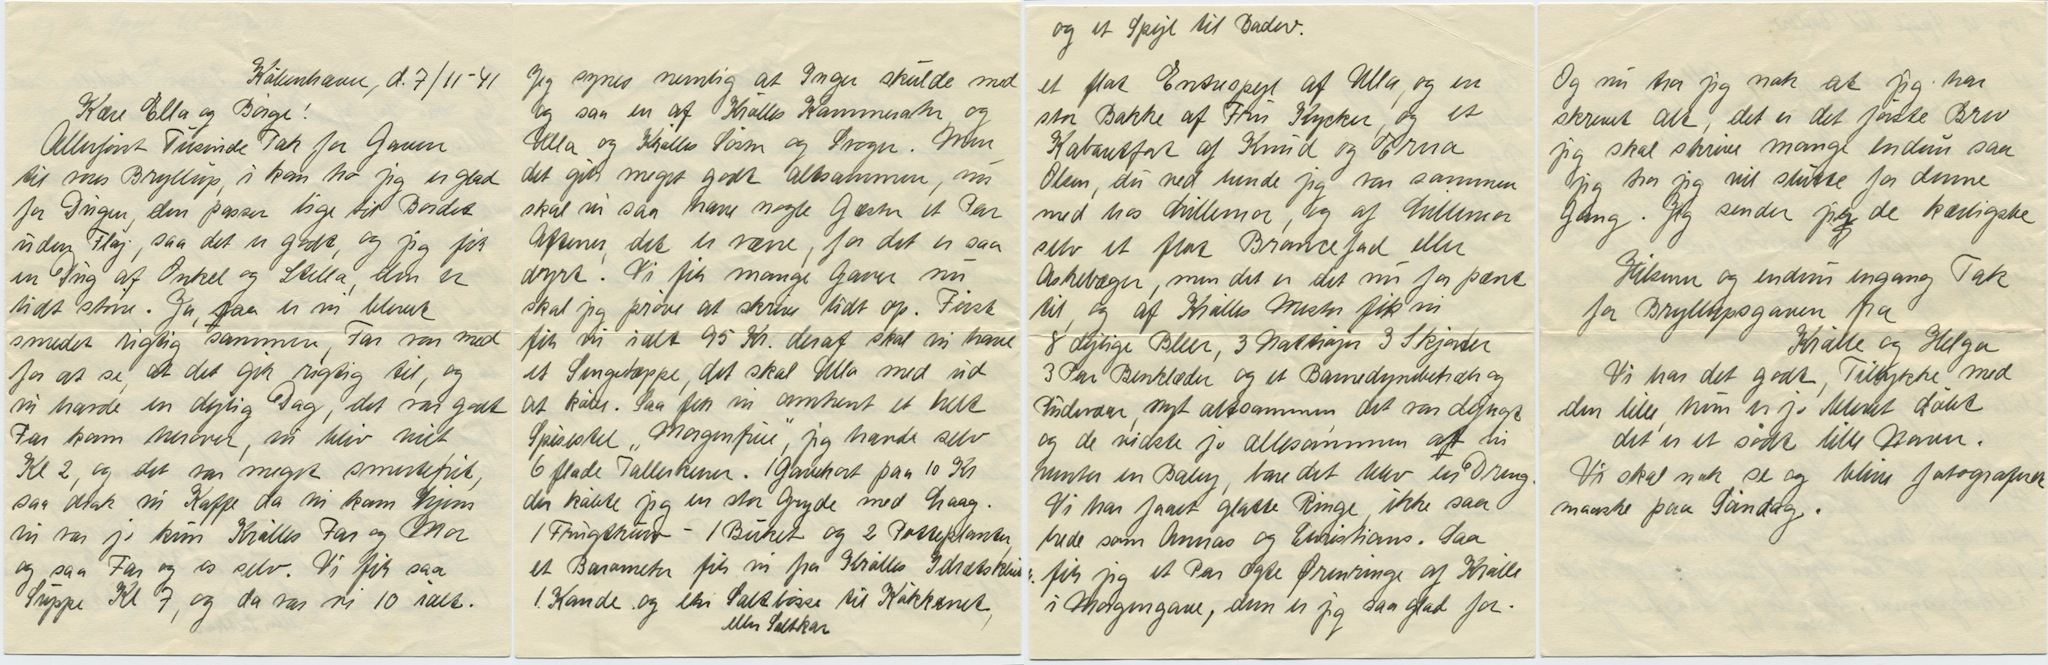 København, d. 7/11-41
Kære Ella og Børge!
Allerførst Tusinde Tak for Gaven
til vores Bryllup, i kan tro jeg er glad
for Dugen, den passer lige til Bordet
uden Fløj, saa det er godt, og jeg fik
en Dug af Onkel og Stella, den er
lidt større. Ja, saa er vi blevet
smedet rigtig sammen, Far var med
for at se, at det gik rigtig til, og
vi havde en dejlig Dag, det var godt
Far kom herover, vi blev viet
Kl 2, og det var meget smertefrit,
saa drak vi Kaffe da vi kom hjem
vi var jo kun Kralles Far og Mor
og saa Far og os selv. Vi fik saa
Suppe Kl 7, og da var vi 10 ialt.
Jeg synes nemlig at Inger skulde med
og saa en af Kralles Kammerater, og
Ulla og Kralles Søster og Svoger. Men
det gik meget godt altsammen, nu
skal vi saa have nogle Gæster et Par
Aftener, det er værre, for det er saa
dyrt. Vi fik mange Gaver nu
skal jeg prøve at skrive lidt op. Først
fik vi ialt 95 Kr. deraf skal vi have
et Sengetæppe, det skal Ulla med ud
at købe. Saa fik vi omtrent et helt
Spisestel "Morgenfrue", jeg havde selv
6 flade Tallerkener. 1 Gavekort paa 10 Kr
der købte jeg en stor Gryde med Laag.
1 Frugtkurv - 1 Buket og 2 Potteplanter,
et Barometer fik vi fra Kralles Idrætsklub
1. Kande og en Saltbøsse til Køkkenet,
eller Saltkar
og et Spejl til Badev.
et flot Entrespejl af Ulla, og en
stor Bakke af Fru Kycker, og et
Kabaretfat af Knud og Erna
Olsen, du ved hende jeg var sammen
med hos Lillemor, og af Lillemor
selv et flot Broncefad eller
Askebæger, men det er det nu for pænt
til, og af Kralles Mester fik vi
8 dejlige Bleer, 3 Nattrøjer 3 Skjorter
3 Par Benklæder og et Barnedynebetræk og
Pudevaar, nyt altsammen det var dejligt
og de vidste jo allesammen at vi
venter en Baby, bare det blev en Dreng.
Vi har faaet glatte Ringe, ikke saa
brede som Annas og Christians. Saa
fik jeg et Par ægte Ørenringe af Kralle
i Morgengave, dem er jeg saa glad for.
Og nu tror jeg nok at jeg har
skrevet alt, det er det første Brev
jeg skal skrive mange endnu saa
jeg tror jeg vil slutte for denne
Gang. Jeg sender jer de kærligste
Hilsner og endnu engang Tak
for Bryllupsgaven fra
Kralle og Helga
Vi har det godt, Tillykke med
den lille, hun er jo blevet døbt
det er et sødt lille Navn.
Vi skal nok se og blive fotograferet
maaske paa Søndag.